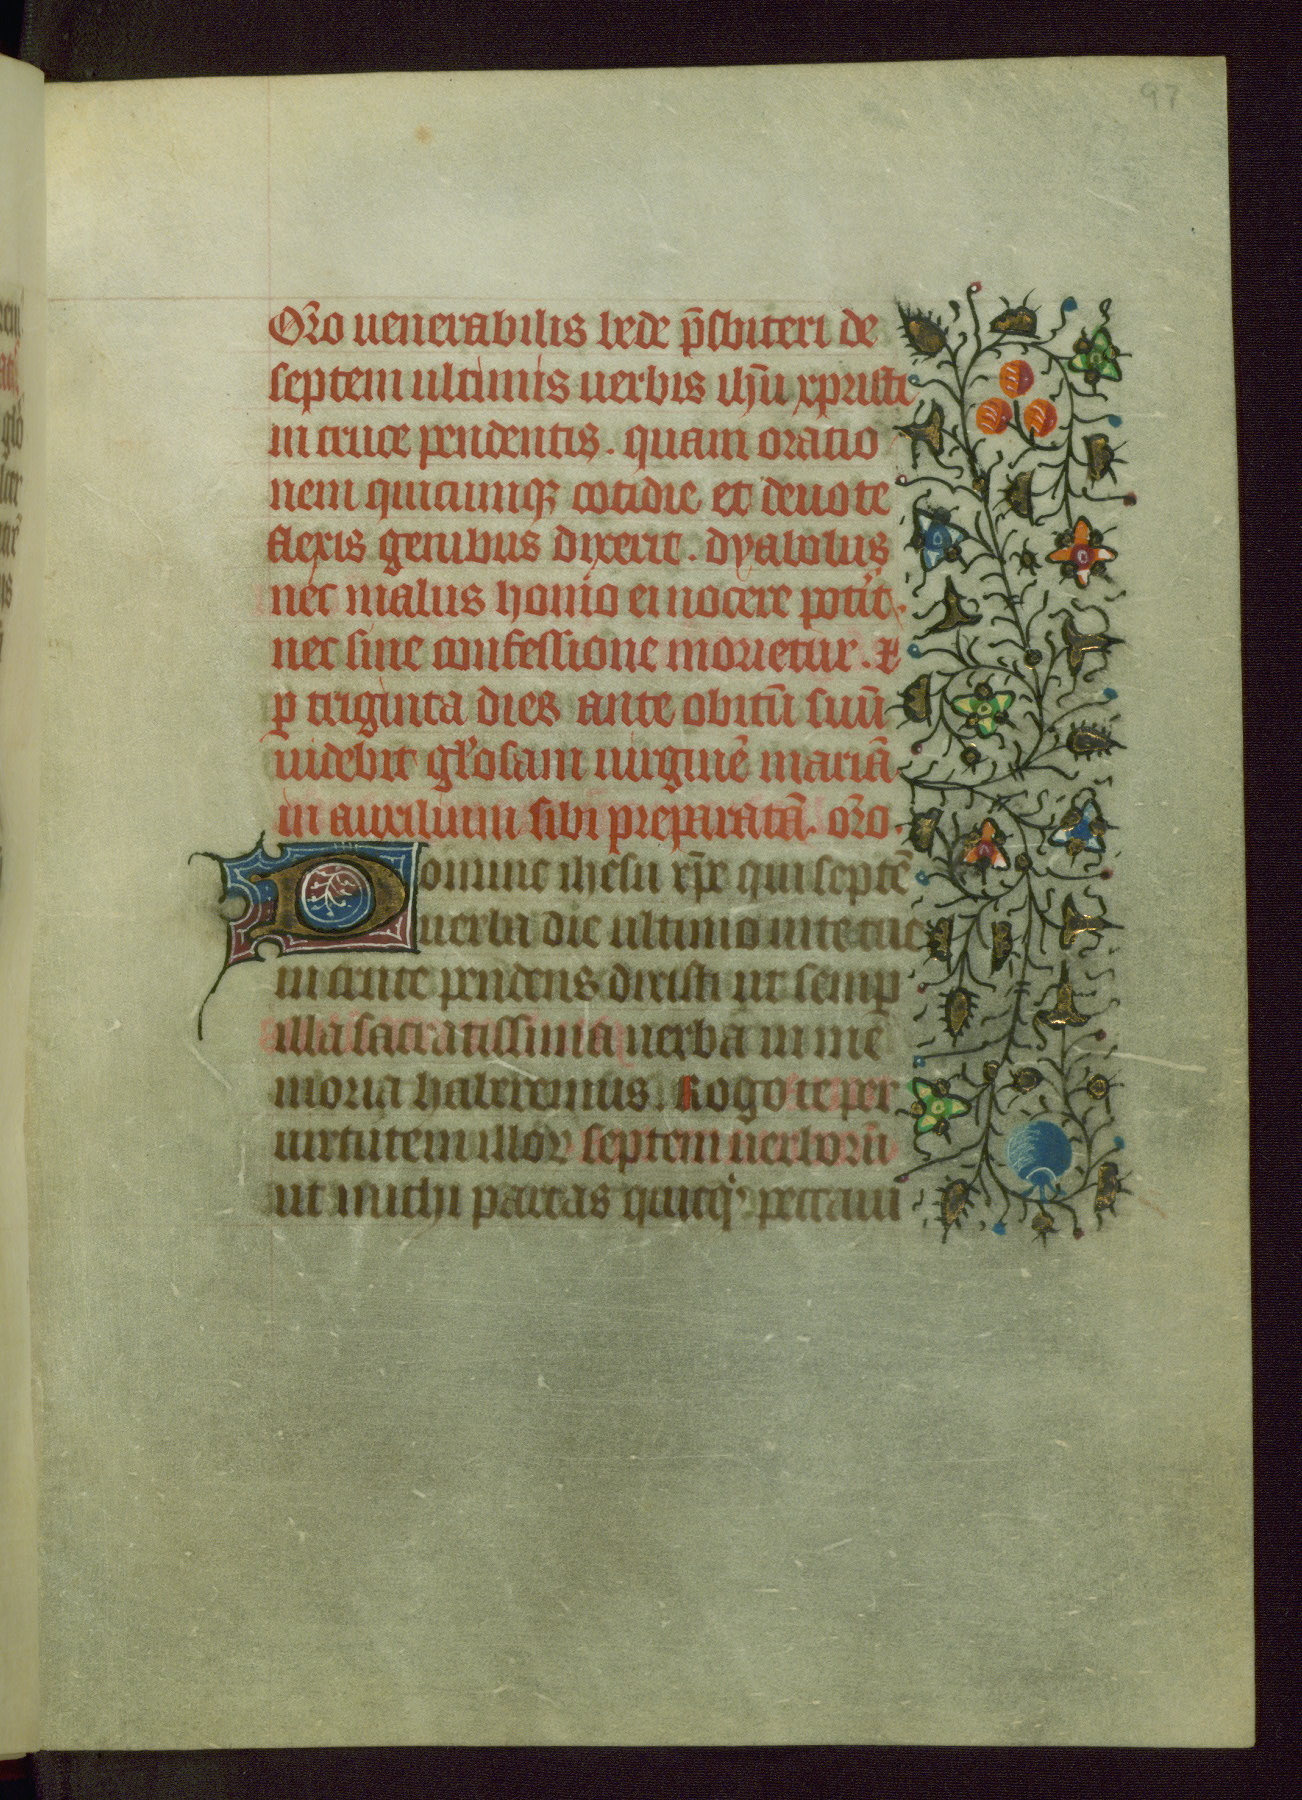 97
Or̃o uenerabilis bede p̃sbiteri de
septem ultimis uerbis ihũ xpristi
in cruce pendentis. quam oratio
nem quicumqꝫ cotidie et deuote
flexis genibus dixerit. dyabolus
nec malus homo ei nocere potĩt.
nec sine confessione morietur. ⁊
ꝑ triginta dies ante obitũ suũ
uidebit gl'osam uirginẽ mariã
in auxilium sibi preparatã. or̃o.
Domine ihesu xp̃e qui septẽ
uerba die ultimo uite tue
in cruce pendens dixisti ut semꝑ
illa sacratissima uerba in me
moria haberemus. Rogo te per
uirtutem illoꝝ septem uerborũ
ut michi parcas quicq' peccaui